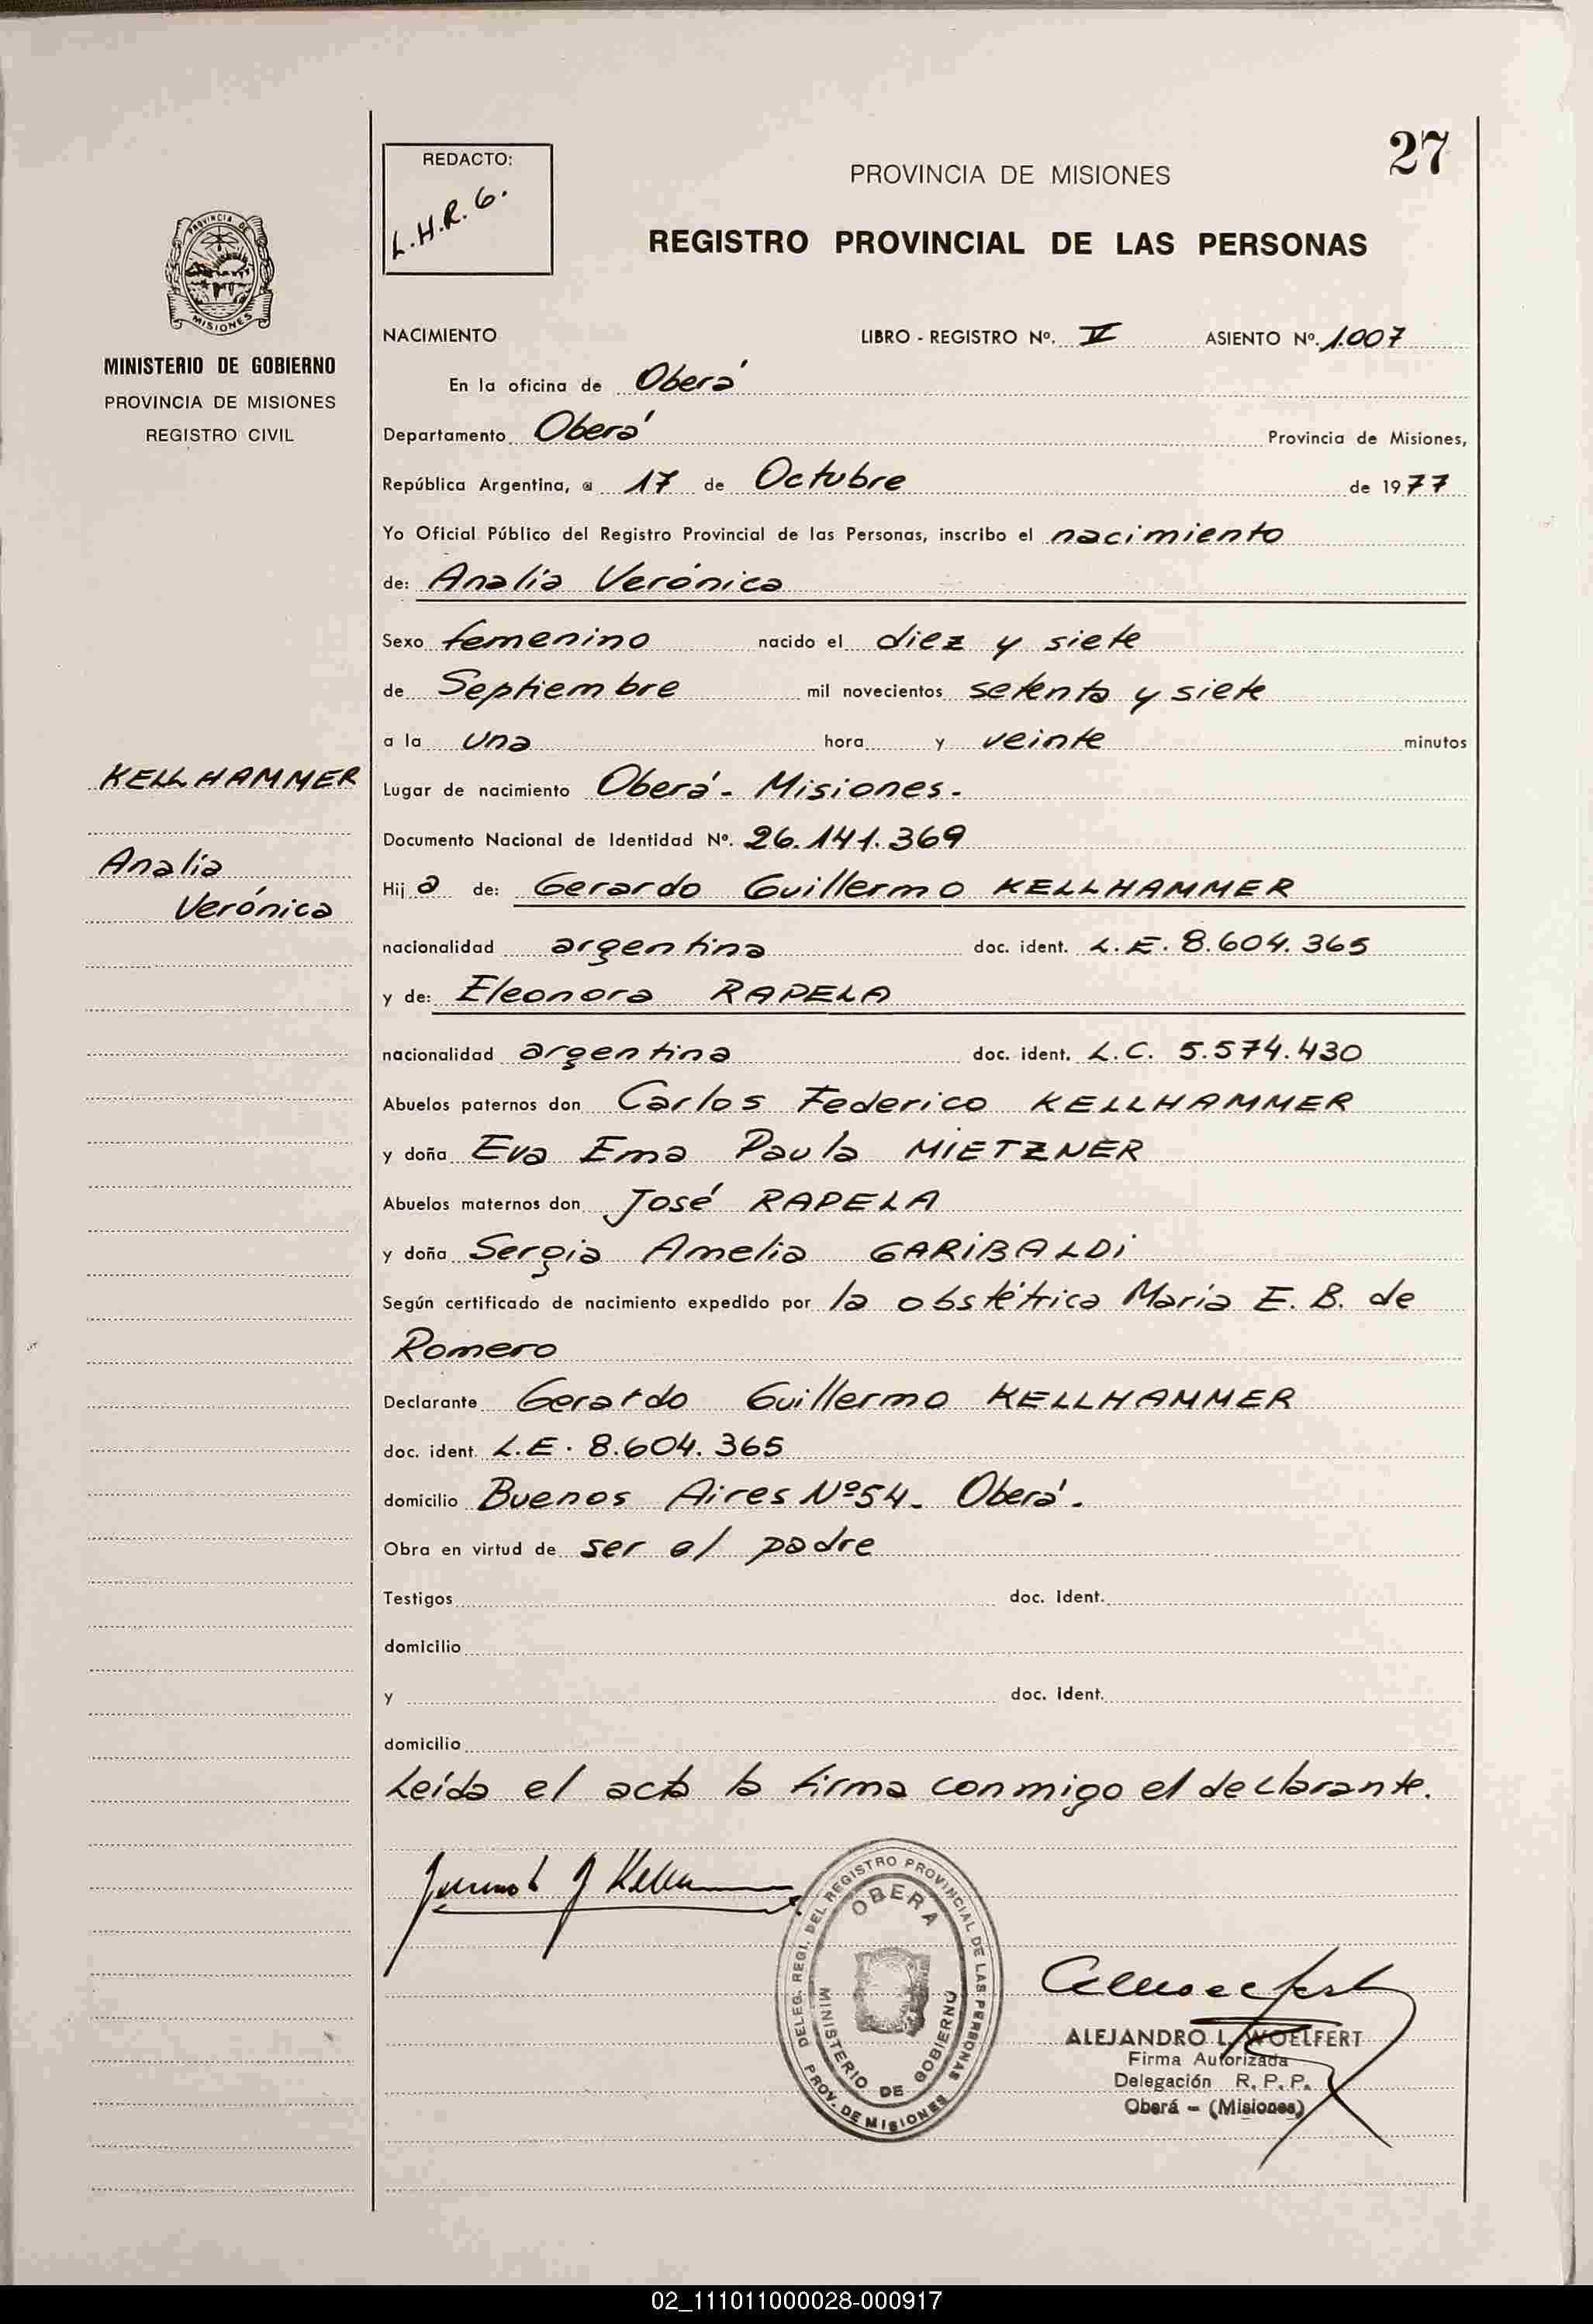 27
REDACTO:
L.H.R.G.
PROVINCIA DE MISIONES
REGISTRO PROVINCIAL DE LAS PERSONAS
PROVINCIA DE
MISIONES
MINISTERIO DE GOBIERNO
PROVINCIA DE MISIONES
REGISTRO CIVIL
NACIMIENTO LIBRO - REGISTRO Nº. V ASIENTO Nº. 1.007
En la oficina de Oberá
Departamento Oberá Provincia de Misiones,
República Argentina, a 17 de Octubre de 1977
Yo Oficial Público del Registro Provincial de las Personas, inscribo el nacimiento
de: Analia Verónica
Sexo femenino nacido el diez y siete
de Septiembre mil novecientos setenta y siete
a la una hora y veinte minutos
KELLHAMMER
Analia
Verónica
Lugar de nacimiento Oberá - Misiones.
Documento Nacional de Identidad Nº. 26.141.369
Hija de: Gerardo Guillermo KELLHAMMER
nacionalidad argentina doc. ident. L.E. 8.604.365
y de: Eleonora RAPELA
nacionalidad argentina doc. ident. L.C. 5.574.430
Abuelos paternos don Carlos Federico KELLHAMMER
y doña Eva Ema Paula MIETZNER
Abuelos maternos don José RAPELA
y doña Sergia Amelia GARIBALDI
Según certificado de nacimiento expedido por la obstétrica Maria E. B. de
Romero
Declarante Gerardo Guillermo KELLHAMMER
doc. ident. L.E. 8.604.365
domicilio Buenos Aires Nº 54. Oberá.
Obra en virtud de ser el padre
Testigos doc. ident.
domicilio
y doc. ident.
domicilio
Leida el acta la firma conmigo el declarante.
DELEG. REGI. DEL REGISTRO PROVINCIAL DE LAS PERSONAS
PROV. DE MISIONES
OBERA
MINISTERIO DE GOBIERNO
ALEJANDRO L. WOELFERT
Firma Autorizada
Delegación R. P. P.
Oberá - (Misiones)
02_111011000028-000917